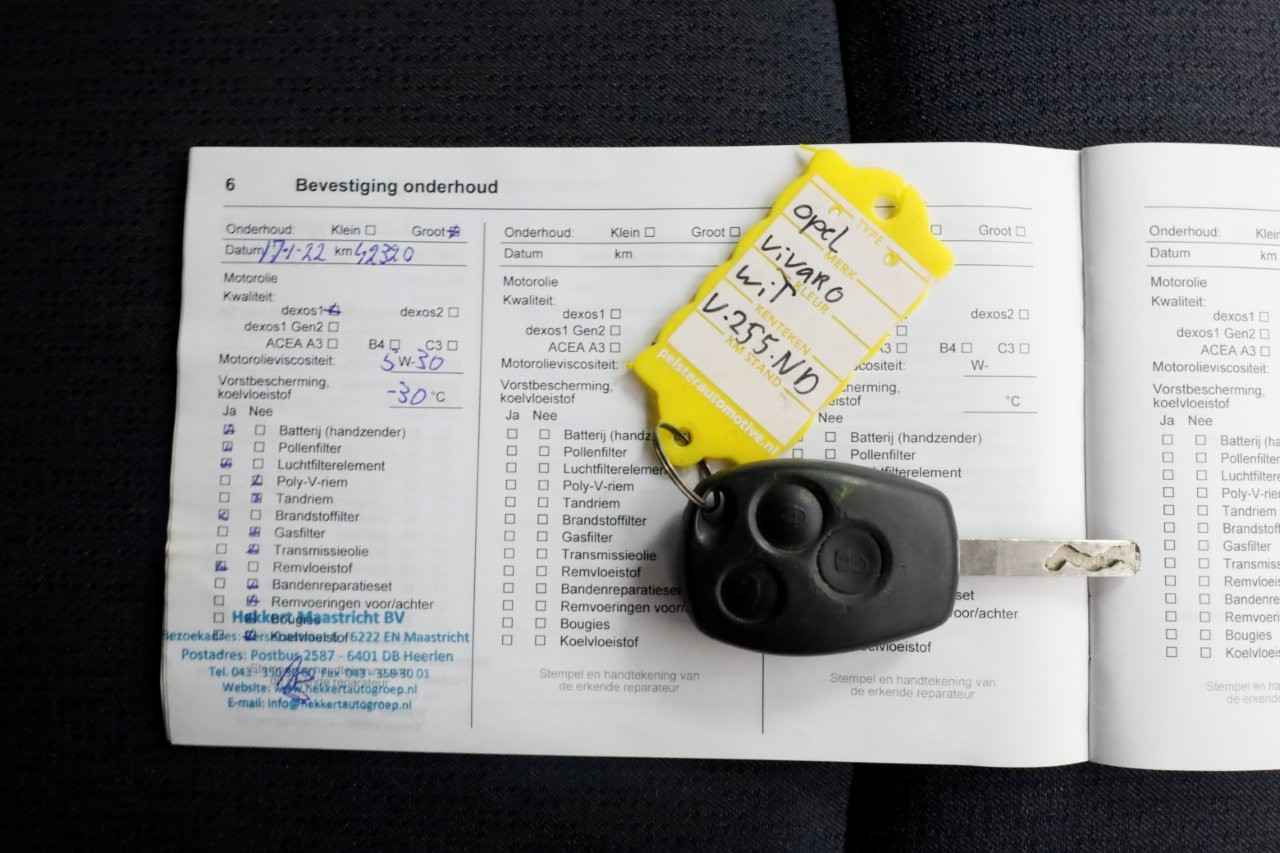 6 Bevestiging onderhoud
Onderhoud: Klein Groot
Datum 17-1-22 km 42320
Motorolie
Kwaliteit:
dexos1 dexos2
dexos1 Gen2
ACEA A3 B4 C3
Motorolieviscositeit: 5 W-30
Vorstbescherming,
koelvloeistof -30 °C
Ja Nee
Batterij (handzender)
Pollenfilter
Luchtfilterelement
Poly-V-riem
Tandriem
Brandstoffilter
Gasfilter
Transmissieolie
Remvloeistof
Bandenreparatieset
Remvoeringen voor/achter
Bougies
Koelvloeistof
Hekkert Maastricht BV
6222 EN Maastricht
Postadres: Postbus 2587 - 6401 DB Heerlen
Tel. 043 Fax 043 - 358 30 01
Website: www.hekkertautogroep.nl
E-mail: info@hekkertautogroep.nl
Onderhoud: Klein Groot
Datum km
Motorolie
Kwaliteit:
dexos1
dexos1 Gen2
ACEA A3
Motorolieviscositeit:
Vorstbescherming,
koelvloeistof
Ja Nee
Batterij (handz
Pollenfilter
Luchtfilterelemen
Poly-V-riem
Tandriem
Brandstoffilter
Gasfilter
Transmissieolie
Remvloeistof
Bandenreparaties
Remvoeringen voor/
Bougies
Koelvloeistof
Stempel en handtekening van
de erkende reparateur
TYPE
opel
MERK
vivaro
KLEUR
wit
KENTEKEN
V.255.ND
KM STAND
pelsterautomotive.nl
Groot
dexos2
A3 B4 C3
scositeit: W-
cherming,
eistof °C
Nee
Batterij (handzender)
Pollenfilter
element
set
voor/achter
elvloeistof
Stempel en handtekening van
de erkende reparateur
Onderhoud: Klein
Datum km
Motorolie
Kwaliteit:
dexos1
dexos1 Gen2
ACEA A3
Motorolieviscositeit:
Vorstbescherming,
koelvloeistof
Ja Nee
Batterij (ha
Pollenfilter
Luchtfilte
Poly-V-rie
Tandriem
Brandstof
Gasfilter
Transmiss
Remvloeis
Bandenre
Remvoeri
Bougies
Koelvloeis
Stempel en
de erkend